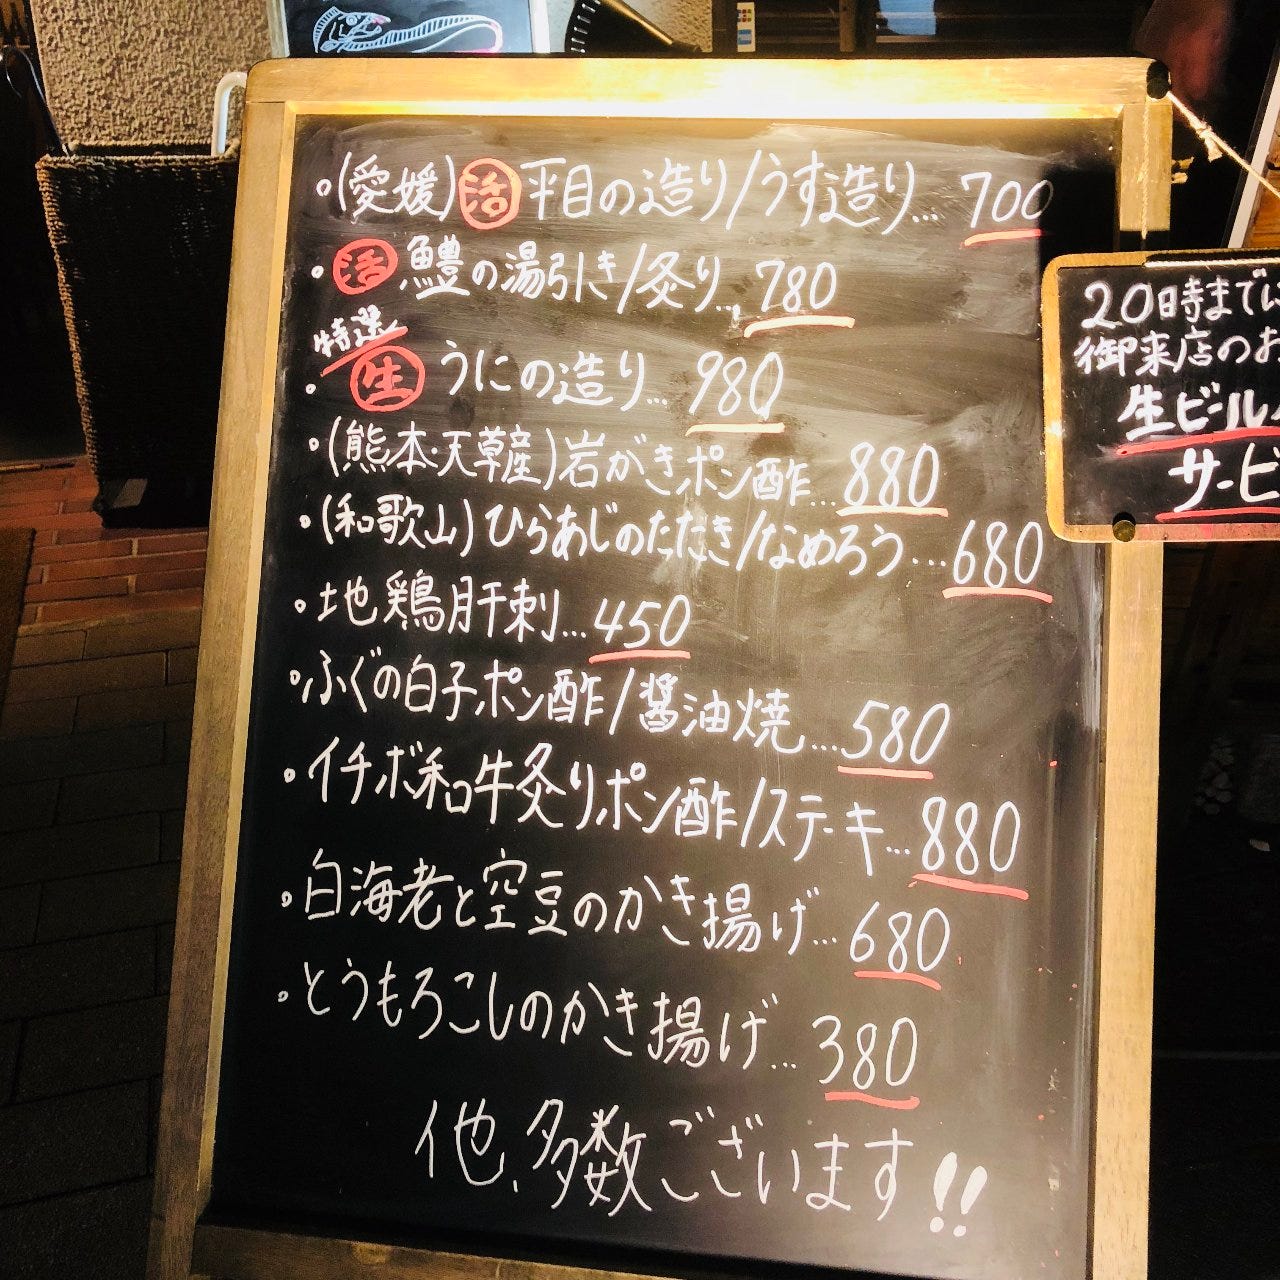 。(愛媛)活平目の造り/うす造り… 700
・活 鱧の湯引き/炙り… 780
特選
・生 うにの造り… 980
・(熊本・天草産)岩がきポン酢… 880
・(和歌山)ひらあじのたたき/なめろう… 680
。地鶏肝刺… 450
。ふぐの白子ポン酢/醤油焼… 580
・イチボ和牛炙りポン酢/ステーキ… 880
。白海老と空豆のかき揚げ… 680
。とうもろこしのかき揚げ… 380
他、多数ございます!!
20時までに
御来店のお
生ビール
サービ